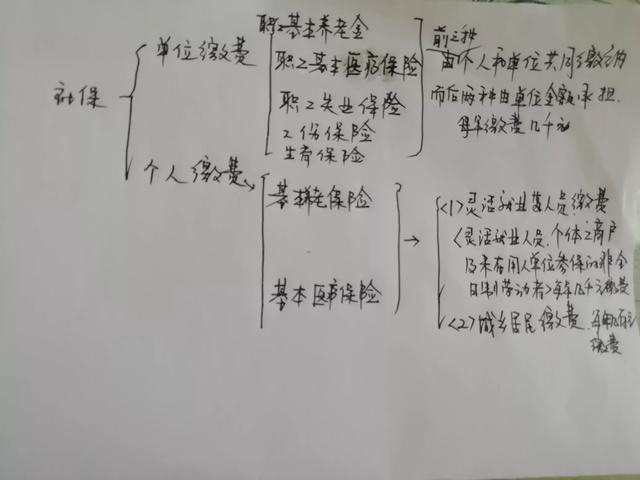 社保
单位缴费
职工基本养老金
职工基本医疗保险
职工失业保险
工伤保险
生育保险
前三种
由个人和单位共同缴纳
而后两种由单位全额承担.
每年缴费几千元
个人缴费
基本养老保险
基本医疗保险
<1>灵活就业人员缴费
<灵活就业人员、个体工商户
及未在用人单位参保的非全
日制劳动者>每年几千元缴费
<2>城乡居民缴费.每年几百元
缴费